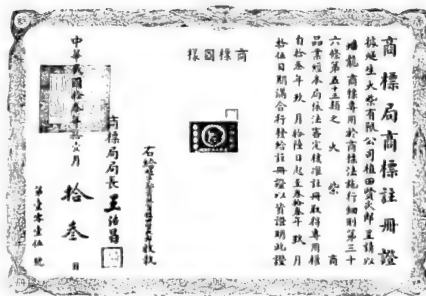 商標局商標註冊證
據燧生火柴有限公司植田賢次郎呈請以
蟠龍 商標專用於商標法施行細則第三十
六條第五十三類之 火柴 商
品業經本局依法審定核准註冊取得專用權
自拾叁年玖月拾陸日起至叁拾叁年玖月
拾伍日期滿合行發給註冊證以資證明此證
商標圖樣
右給
收執
商標局局長王治昌
中華民國拾叁年拾壹月 拾叁 日
第壹零壹伍號